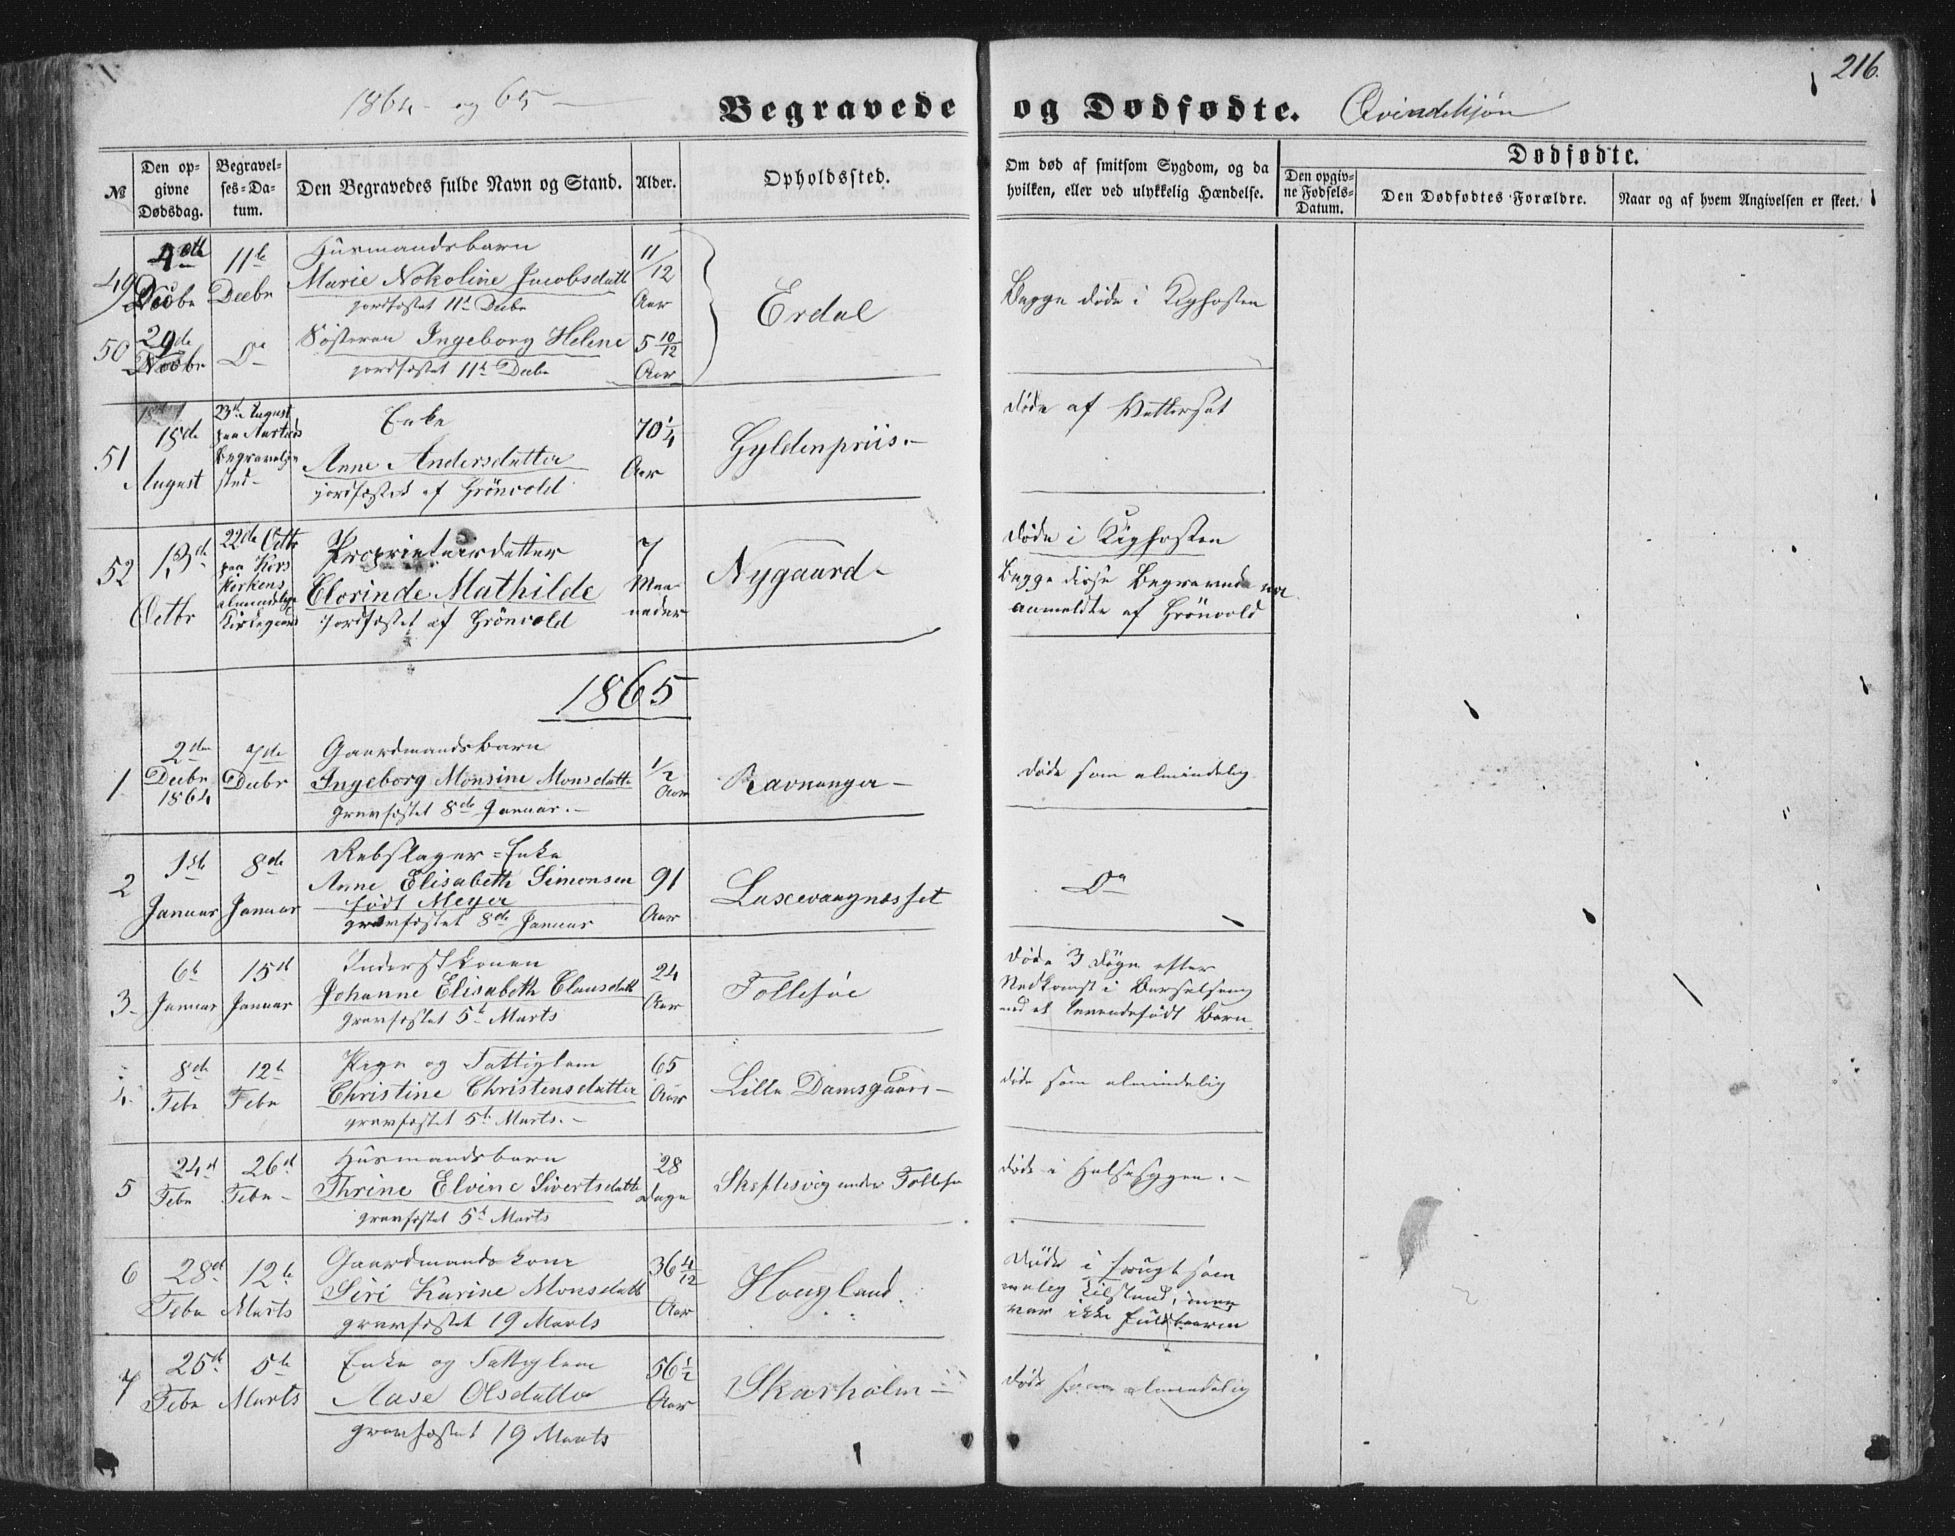 216.
1864 og 65
Begravede og Dødfødte. Qvindekjøn
№
Den opgivne Dødsdag.
Begravelses-Datum.
Den Begravedes fulde Navn og Stand.
Alder.
Opholdssted.
Om død af smitsom Sygdom, og da hvilken, eller ved ulykkelig Hændelse.
Dødfødte.
Den opgivne Fødsels-Datum.
Den Dødfødtes Forældre.
Naar og af hvem Angivelsen er skeet.
49
4de Decbr
11te Decbr
Husmandsbarn
Marie Nokoline Jacobsdatt
jordfæstet 11te Decbr
11/12 Aar
Erdal
Begge døde i Kighosten
50
29de Novbr
Do
Søsteren Ingeborg Helene
jordfæstet 11te Decbr
5 10/12 Aar
51
18de August
23de August paa Aarstads Begravelsessted
Enke
Anne Andersdatter
jordfæstet af Grönvold
70 1/4 Aar
Gyldenpriis
døde af Vattersot
52
13de Octbr
22de Octbr paa Kors Kirkens almindelige Kirkegaard
Proprietairdatter
Elorinde Mathilde
jordfæstet af Grönvold
7 Maaneder
Nygaard
døde i Kighosten
Begge disse Begravede ere
anmeldte af Grönvold
1865
1
2den Decbr 1864
7de Decbr
Gaardmandsbarn
Ingeborg Monsine Monsdatte
gravfæstet 8de Januar.
1/2 Aar
Ravnanger
døde som almindelig
2
1ste Januar
8de Januar
Rebslager-Enke
Anne Elisabeth Simonsen
født Meyer
gravfæstet 8de Januar
91 Aar
Laxevaagnæsset
Do
3
6te Januar
15de Januar
Inderstkonen
Johanne Elisabeth Clausdatt
gravfæstet 5te Marts
24 Aar
Follesøe
døde 3 Døgn efter
Nedkomst i Barselseng
med et levendefødt Barn
4
8de Febr
12te Febr
Pige og Fattiglem
Christine Christensdatter
gravfæstet 5te Marts.
65 Aar
Lille Damsgaard
døde som almindelig
5
24de Febr
26de Febr
Husmandsbarn
Thrine Elvine Sivertsdatte
gravfæstet 5te Marts
28 Dage
Skeflesvig under Follesø
døde i Halssygen.
6
28de Febr
12te Marts
Gaardmandskone
Siri Karine Monsdatt
gravfæstet 19 Marts
36 4/12 Aar
Hougland
Døde i frugtsommelig Tilstand, men
var ikke fuldbaaren
7
25de Febr
5te Marts
Enke og Fattiglem
Aase Olsdatter
gravfæstet 19 Marts
56 1/2 Aar
Skarholm
døde som almindelig